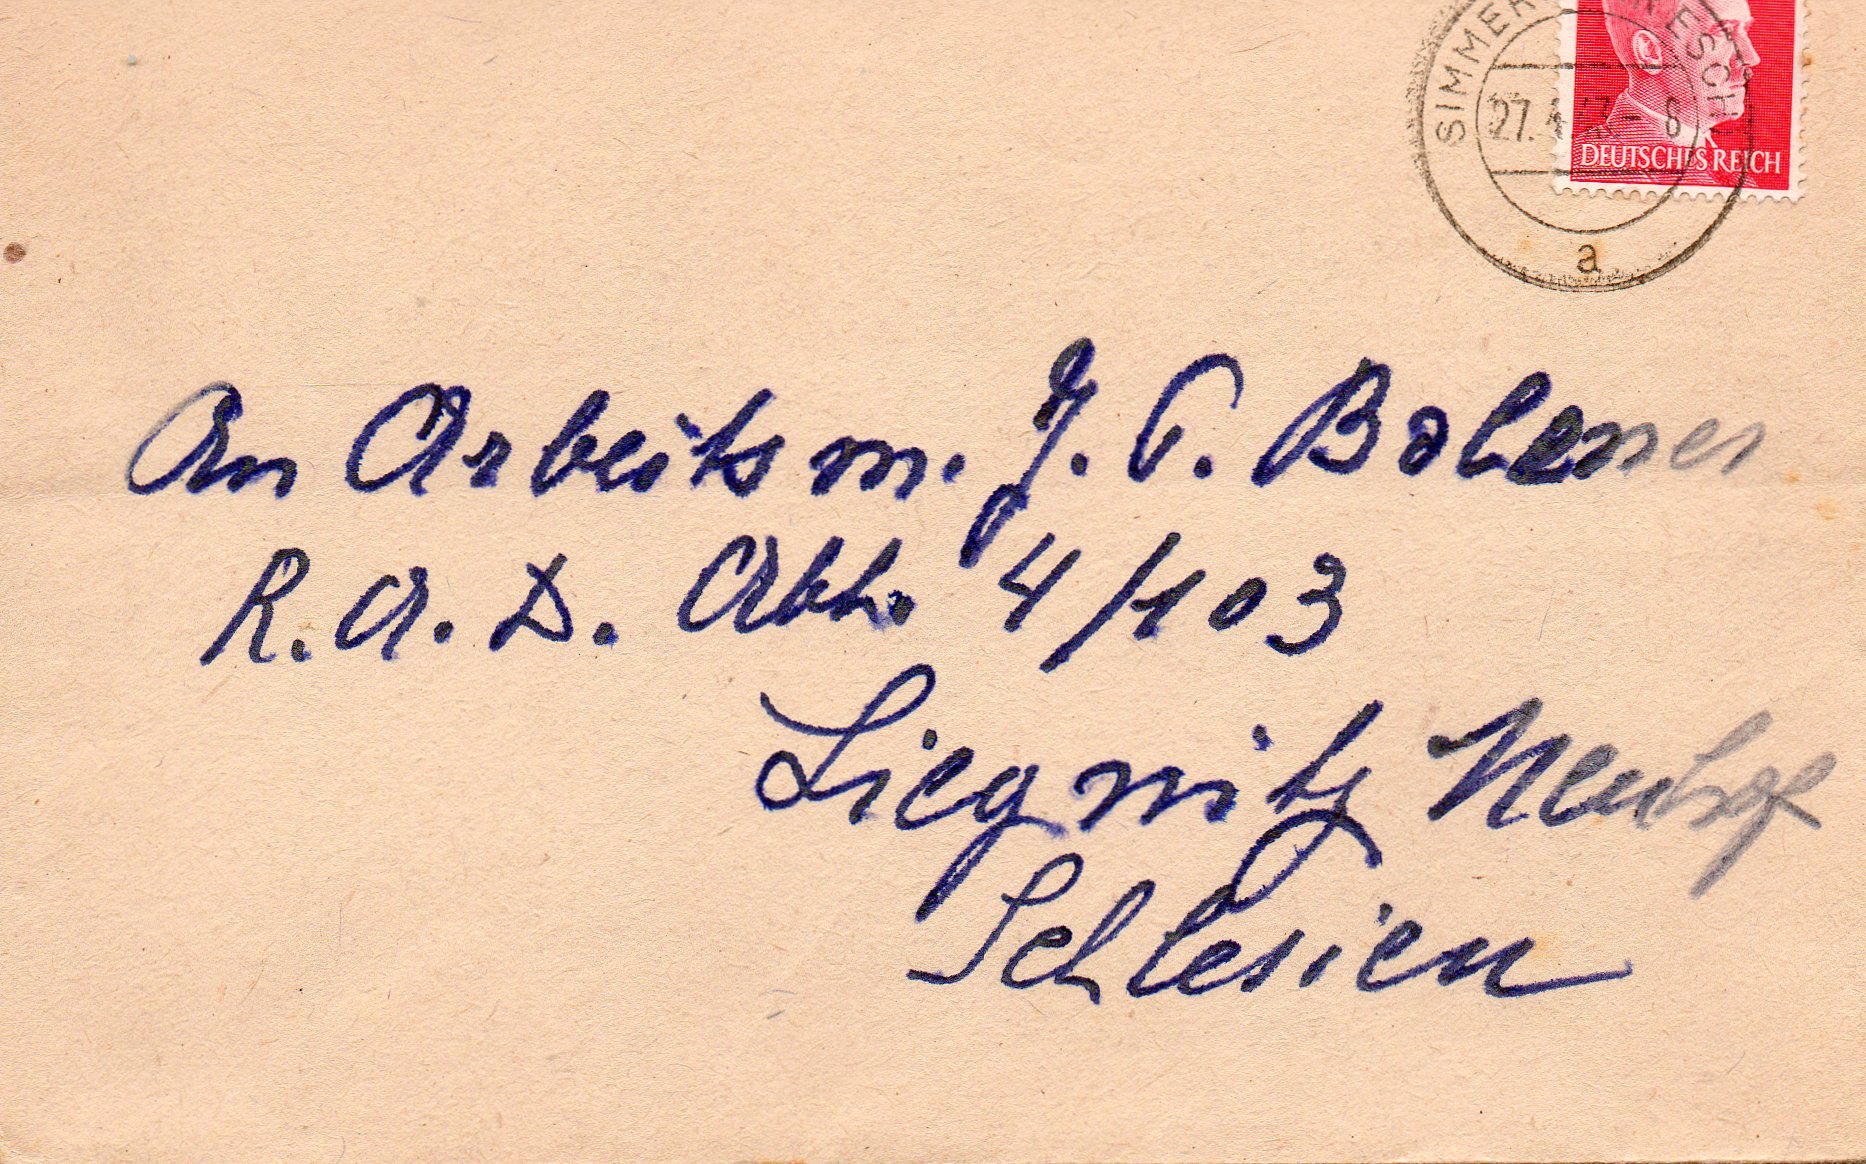 SIMMER ESCH
27.4.43 - 8
DEUTSCHES REICH
a
An Arbeitsm. J. P. Bolener
R. A. D. Abt. 4/103
Liegnitz
Schlesien